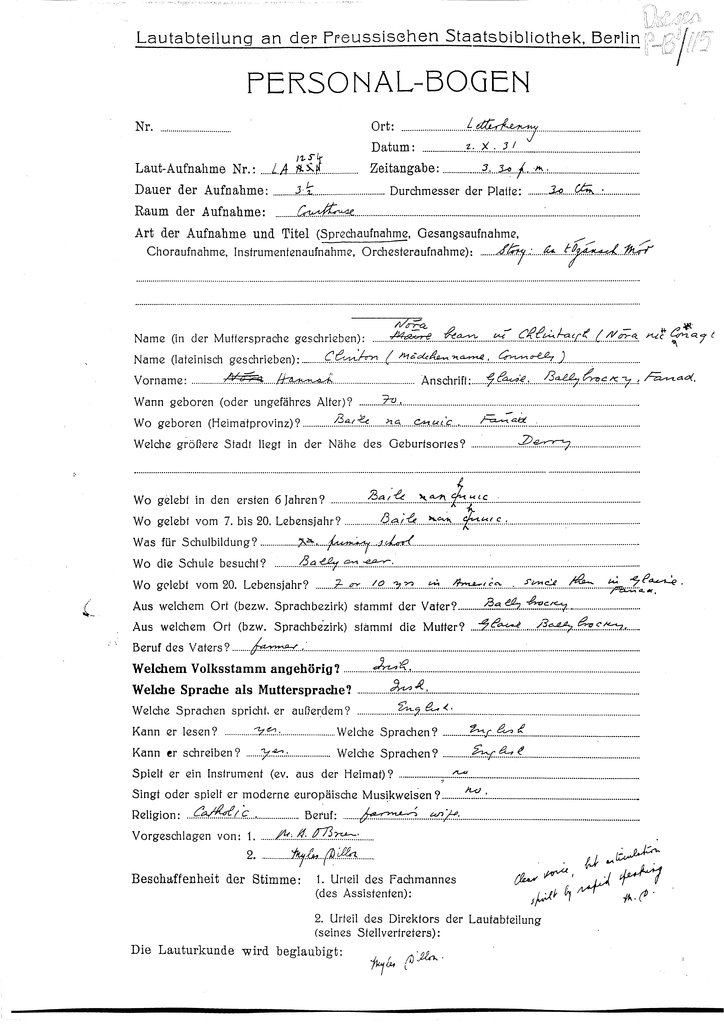 Doegen
P-B/115
Lautabteilung an der Preussischen Staatsbibliothek, Berlin
PERSONAL-BOGEN
Nr.
Ort: Letterkenny
Datum: 2. X. 31
1254
Laut-Aufnahme Nr.: LA Zeitangabe: 3.30 p.m.
Dauer der Aufnahme: 3½ Durchmesser der Platte: 30 Ctm.
Raum der Aufnahme: Courthouse
Art der Aufnahme und Titel (Sprechaufnahme, Gesangsaufnahme,
Choraufnahme, Instrumentenaufnahme, Orchesteraufnahme): Story: an tÓgánach Mór
Nóra
Name (in der Muttersprache geschrieben): Máire bean uí Chliontaigh (Nóra nic
Name (lateinisch geschrieben): Clinton (Mädchenname, Connolly)
Vorname: Nóra Hannah Anschrift: Glaise, Ballyhocky, Fanad.
Wann geboren (oder ungefähres Alter)? 70.
Wo geboren (Heimatprovinz)? Baile na cnuic. Fanad
Welche größere Stadt liegt in der Nähe des Geburtsortes? Derry
Wo gelebt in den ersten 6 Jahren? Baile nan cnuic
Wo gelebt vom 7. bis 20. Lebensjahr? Baile nan cnuic.
Was für Schulbildung? primary school
Wo die Schule besucht?
Wo gelebt vom 20. Lebensjahr? 7 or 10 yrs in America. since then in Glaise.
Fanad.
Aus welchem Ort (bezw. Sprachbezirk) stammt der Vater? Ballyhocky
Aus welchem Ort (bezw. Sprachbezirk) stammt die Mutter? Glaise Ballyhocky.
Beruf des Vaters? farmer.
Welchem Volksstamm angehörig? Irish.
Welche Sprache als Muttersprache? Irish.
Welche Sprachen spricht er außerdem? English.
Kann er lesen? yes. Welche Sprachen? English
Kann er schreiben? yes. Welche Sprachen? English
Spielt er ein Instrument (ev. aus der Heimat)? no
Singt oder spielt er moderne europäische Musikweisen? no.
Religion: Catholic. Beruf: farmer's wife.
Vorgeschlagen von: 1. M. A. O'Brien
2. Myles Dillon
Beschaffenheit der Stimme: 1. Urteil des Fachmannes
(des Assistenten):
Clear voice, but articulation
spoilt by rapid speaking
M. D.
2. Urteil des Direktors der Lautabteilung
(seines Stellvertreters):
Die Lauturkunde wird beglaubigt:
Myles Dillon.